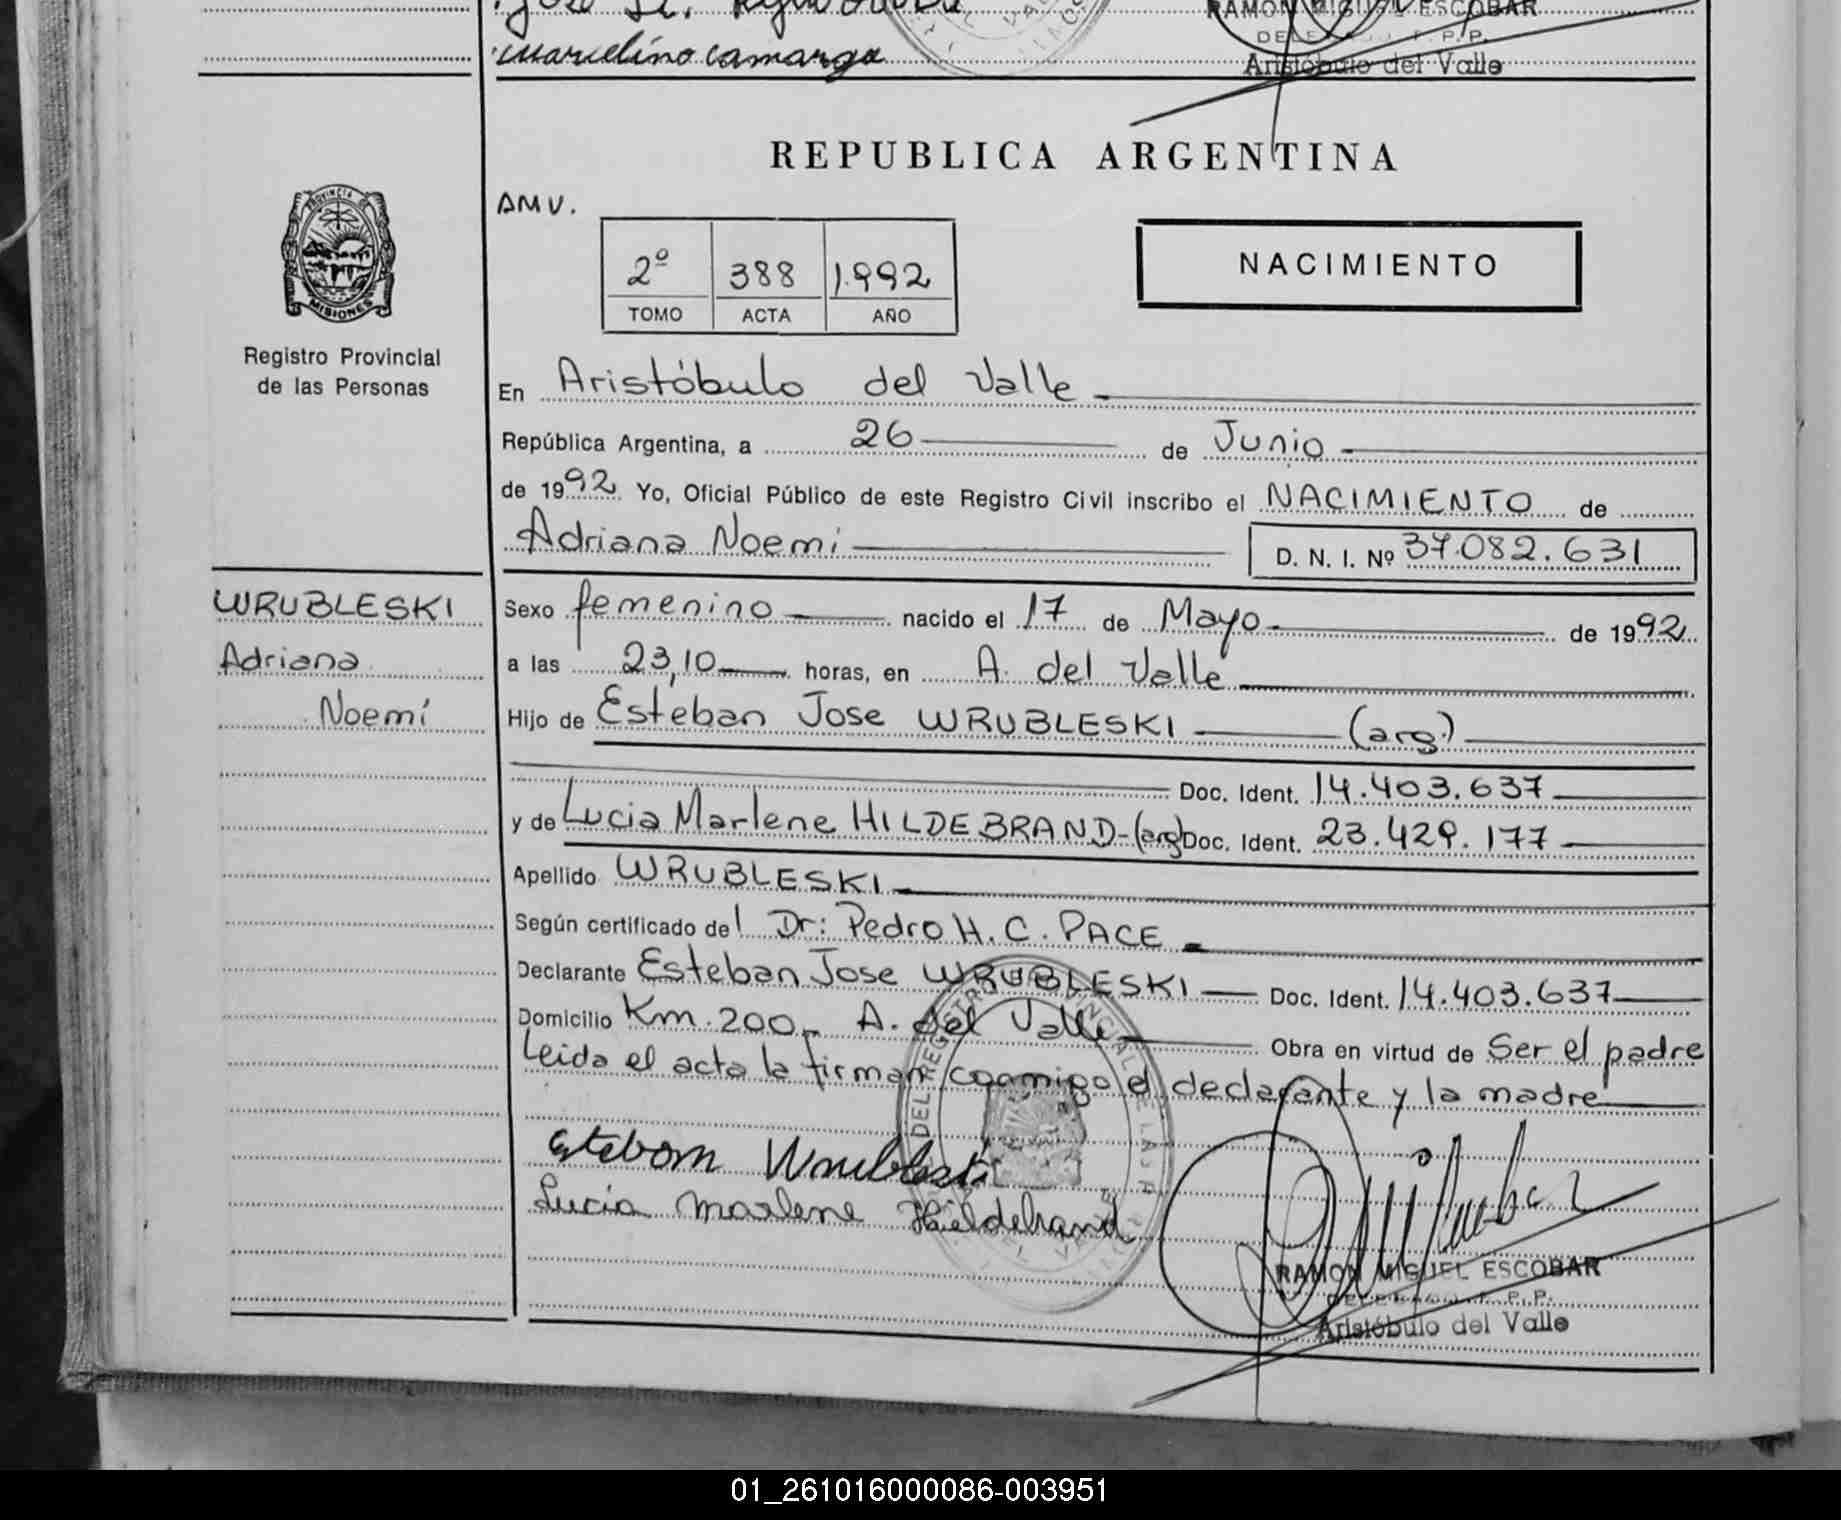 Marcelino Camargo
RAMON MIGUEL ESCOBAR
Aristóbulo del Valle
REPUBLICA ARGENTINA
AMV.
PROVINCIA DE
MISIONES
2º 388 1.992
TOMO ACTA AÑO
NACIMIENTO
Registro Provincial
de las Personas
En Aristóbulo del Valle
República Argentina, a 26 de Junio
de 1992 Yo, Oficial Público de este Registro Civil inscribo el NACIMIENTO de
Adriana Noemí D. N. I. Nº 37.082.631
WRUBLESKI
Adriana
Noemí
Sexo femenino nacido el 17 de Mayo de 1992
a las 23,10 horas, en A. del Valle
Hijo de Esteban Jose WRUBLESKI (arg.)
Doc. Ident. 14.403.637
y de Lucia Marlene HILDEBRAND-(arg) Doc. Ident. 23.429.177
Apellido WRUBLESKI
Según certificado del Dr: Pedro H. C. PACE
Declarante Esteban Jose WRUBLESKI Doc. Ident. 14.403.637
Domicilio Km. 200 - A. del Valle Obra en virtud de Ser el padre
Leida el acta la firman conmigo el declarante y la madre
Esteban Wrubleski
Lucia Marlene Hildebrand
RAMON MIGUEL ESCOBAR
Aristóbulo del Valle
01_261016000086-003951